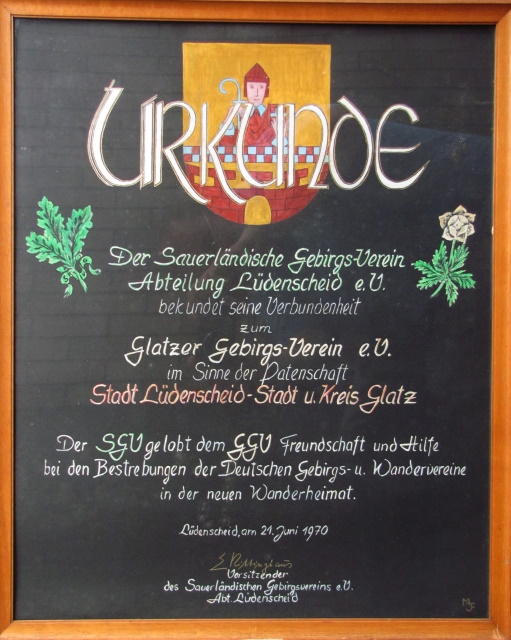 URKUNDE
Der Sauerländische Gebirgs-Verein
Abteilung Lüdenscheid e.V.
bekundet seine Verbundenheit
zum
Glatzer Gebirgs-Verein e.V.
im Sinne der Patenschaft
Stadt Lüdenscheid - Stadt u. Kreis Glatz
Der SGV gelobt dem GGV Freundschaft und Hilfe
bei den Bestrebungen der Deutschen Gebirgs- u. Wandervereine
in der neuen Wanderheimat.
Lüdenscheid, am 21. Juni 1970
Vorsitzender
des Sauerländischen Gebirgsvereins e.V.
Abt. Lüdenscheid